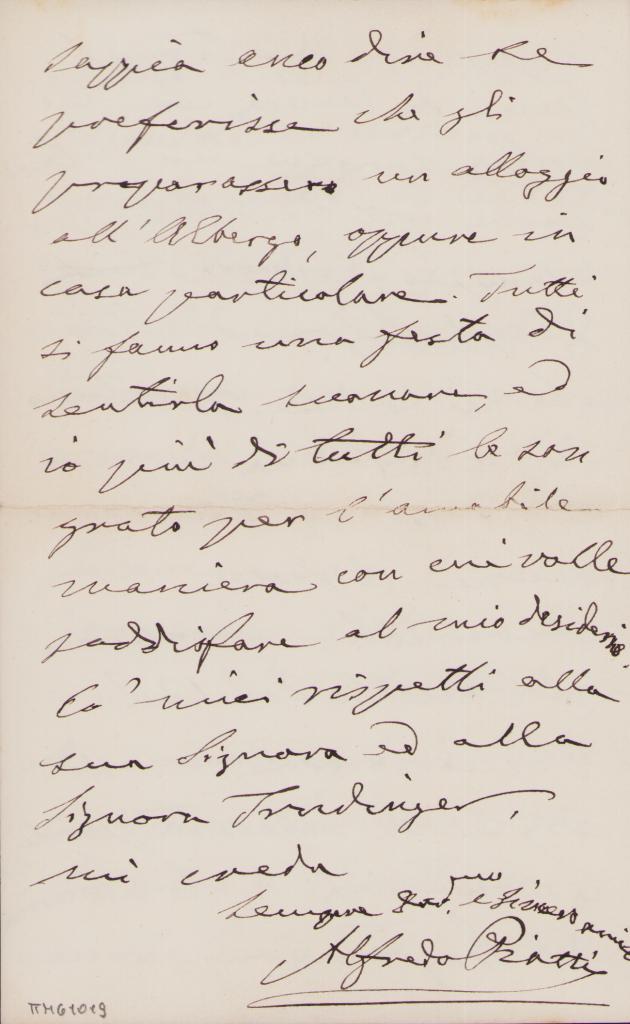 sappia anco dire se
preferisse che gli
preparassero un alloggio
all'Albergo, oppure in
casa particolare. Tutti
si fanno una festa di
sentirla suonare, ed
io più di tutti le son
grato per l'amabile
maniera con cui volle
soddisfare al mio desiderio.
Co' miei rispetti alla
sua Signora ed alla
Signora Trudinger,
mi creda
sempre e sincero amico
Alfredo Piatti
ΠΗ61019